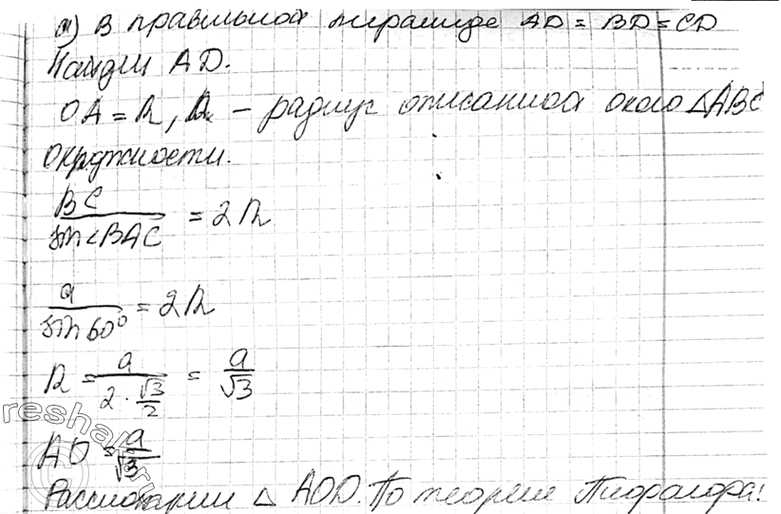 а) В правильной пирамиде AD = BD = CD
Найдем AD.
OA = R, R – радиус описанной около △ABC
окружности.
BC / sin∠BAC = 2R
a / sin 60° = 2R
R = a / (2 · √3/2) = a / √3
AO = a / √3
Рассмотрим △ AOD. По теореме Пифагора:
reshak.ru